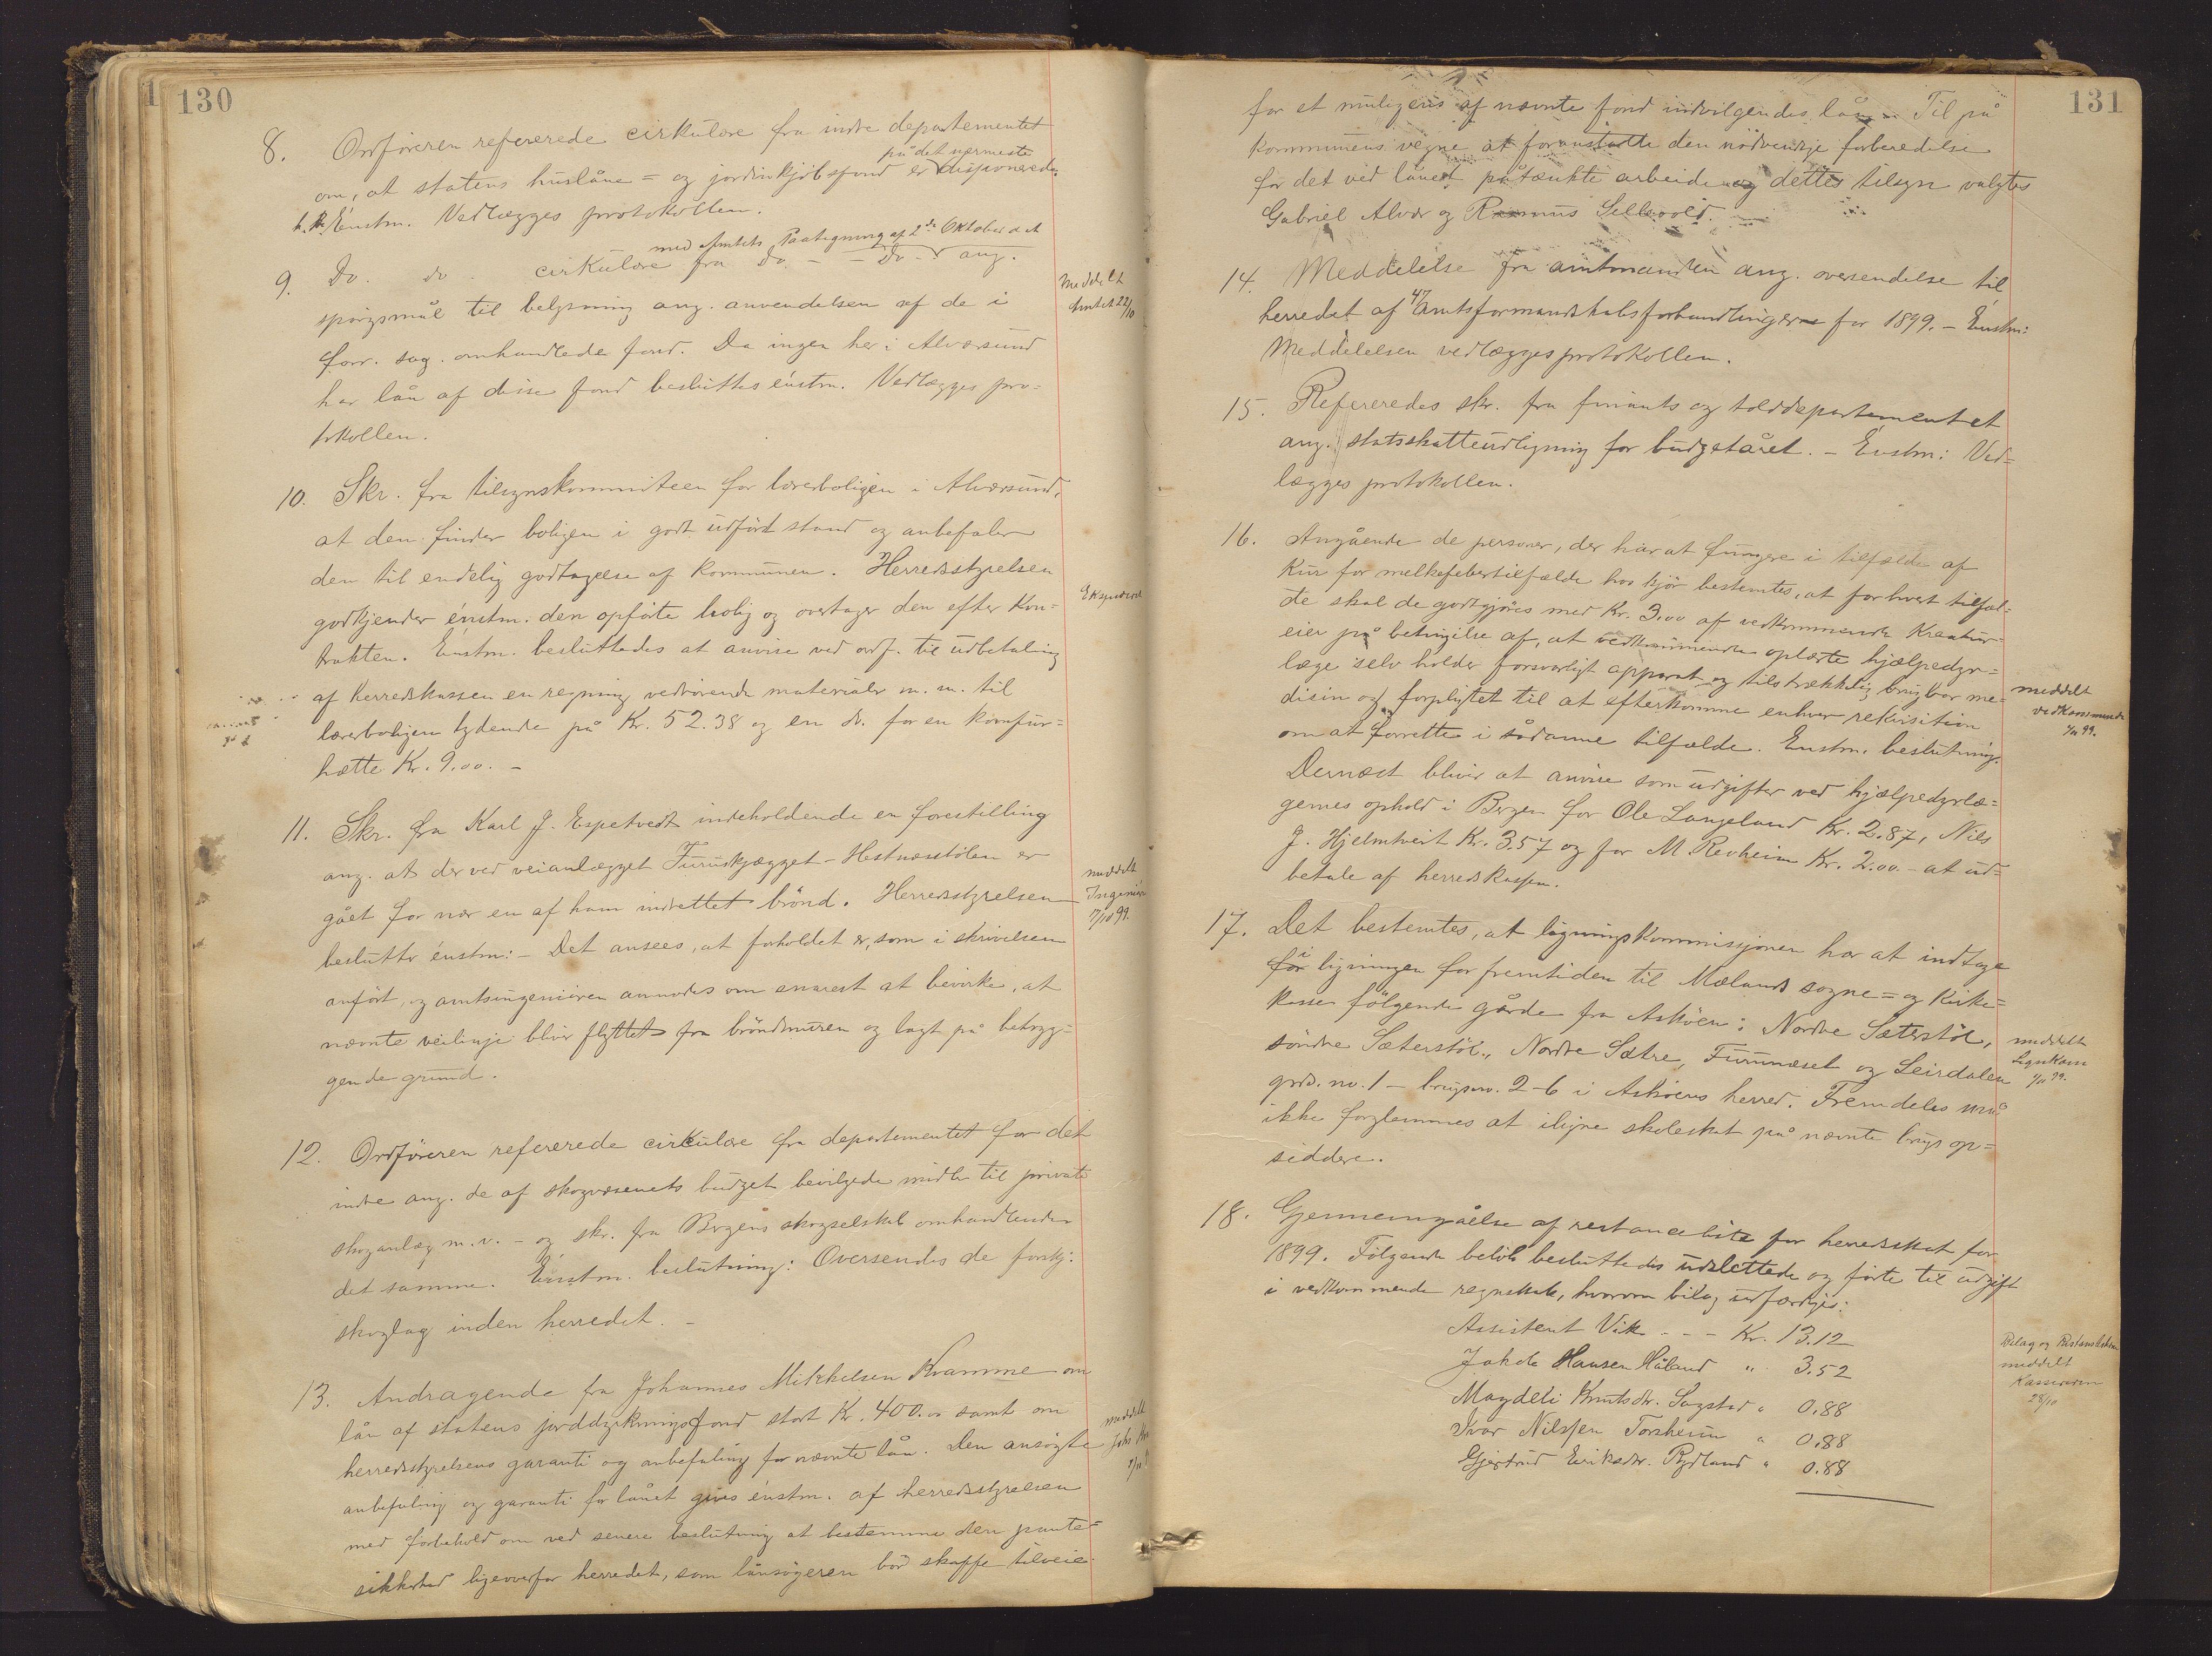 130
8. Ordføreren refererede cirkulære fra indre departementet
på det nærmeste
om, at statens huslåne= og jordindkjøbsfond er disponerede.
Énstm. Vedlægges protokollen.
med Amtets Paategning af 2de Oktober d. A
9. Do. do. cirkulære fra do. - - do - ang.
spørgsmål til belysning ang. anvendelsen af de i
forr. sag. omhandlede fond. Da ingen her i Alværsund
har lån af disse fond besluttes énstm. Vedlægges pro=
tokollen.
Meddelt
Amtet 22/10
10. Skr. fra tilsynskommiteen for lærerboligen i Alværsund,
at den finder boligen i godt udført stand og anbefaler
den til endelig godtagelse af kommunen. Herredsstyrelsen
godkjender énstm. den opførte bolig og overtager den efter kon=
trakten. Énstm. besluttedes at anvise ved ordf. til udbetaling
af herredskassen en regning vedrørende materialer m. m. til
lærerboligen lydende på Kr. 52.38 og en do. for en komfur=
hætte Kr. 9.00. -
11. Skr. fra Karl J. Espetvedt indeholdende en forestilling
ang. at der ved veianlægget Furuskjægget - Hestnesstølen er
gået for nær en af ham indrettet brønd. Herredsstyrelsen
beslutter énstm: - Det ansees, at forholdet er, som i skrivelsen
anført, og amtsingeniøren anmodes om snarest at bevirke, at
nævnte veilinje blir flyttet fra brøndmuren og lagt på betryg=
gende grund.
meddelt
Ingeniør
7/10 99.
12. Ordføreren refererede cirkulære fra departementet for det
indre ang. de af skogvæsenets budget bevilgede midler til private
skoganlæg m. v. - og skr. fra Bergens skogselskab omhandlende
det samme. Énstm. beslutning: Oversendes de forskj:
skoglag inden herredet. -
13. Andragende fra Johannes Mikkelsen Kramme om
lån af statens jorddyrkningsfond stort Kr. 400.00 samt om
herredsstyrelsens garanti og anbefaling for nævnte lån. Den ansøgte
anbefaling og garanti for lånet gives énstm. af herredsstyrelsen
med forbehold om ved senere beslutning at bestemme den pante=
sikkerhed ligeoverfor herredet, som lånsøgeren bør skaffe tilveie
meddelt
131
for et muligens af nævnte fond indvilgendes lån. - Til på
kommunens vegne at foranstalte den nødvendige forberedelse
for det ved lånet påtænkte arbeide og dettes tilsyn valgtes
Gabriel Alvær og Rasmus Sellevold.
14. Meddelelse fra amtmanden ang. oversendelse til
herredet af 47 amtsformandskabsforhandlingerne for 1899. - Énstm:
Meddelelsen vedlægges protokollen.
15. Refereredes skr. fra finants og tolddepartementet
ang. statsskatteudligning for budgetåret. - Énstm: Ved=
lægges protokollen.
16. Angående de personer, der har at fungere i tilfælde af
kur for melkefebertilfælde hos kjør bestemtes, at for hvert tilfæl=
de skal de godtgjøres med Kr. 3.00 af vedkommende Kreatur=
eier på betingelse af, at vedkommende oplærte hjælpedyr=
læge selv holder forsvarligt apparat og tilstrækkelig brugbar me=
disin og forpligtet til at efterkomme enhver rekvisition
om at forrette i sådanne tilfælde. Énstm. beslutning.
Dernæst bliver at anvise som udgifter ved hjælpedyrlæ=
gernes ophold i Bergen for Ole Langeland Kr. 2.87, Nils
J. Hjelmtveit Kr. 3.57 og for M. Revheim Kr. 2.00. - at ud=
betale af herredskassen.
meddelt
vedkommende
1/11 99.
17. Det bestemtes, at ligningskommissjonen har at indtage
i ligningen for fremtiden til Mælands sogne= og Kirke=
kasse følgende gårde fra Askøen: Nordre Sæterstøl,
søndre Sæterstøl, Nordre Sætre, Furunæset og Leirdalen
grd. no. 1 - brugsno. 2-6 i Askøens herred. Fremdeles må
ikke forglemmes at iligne skoleskat på nævnte brugs op=
siddere.
meddelt
Lignkom
1/11 99.
18. Gjennemgåelse af restanceliste for herredsskat for
1899. Følgende beløb besluttedes udslettede og førte til udgift
i vedkommende regnskab, hvorom bilag udfærdiges:
Assistent Vik - - - Kr. 13.12
Jakob Hansen Håland " 3.52
Magdeli Knutsdr. Sagstad " 0.88
Ivar Nilssen Torsheim " 0.88
Gjertrud Eriksdr. Rydland " 0.88
Bilag og Restancelisten
meddelt
Kassereren
28/10